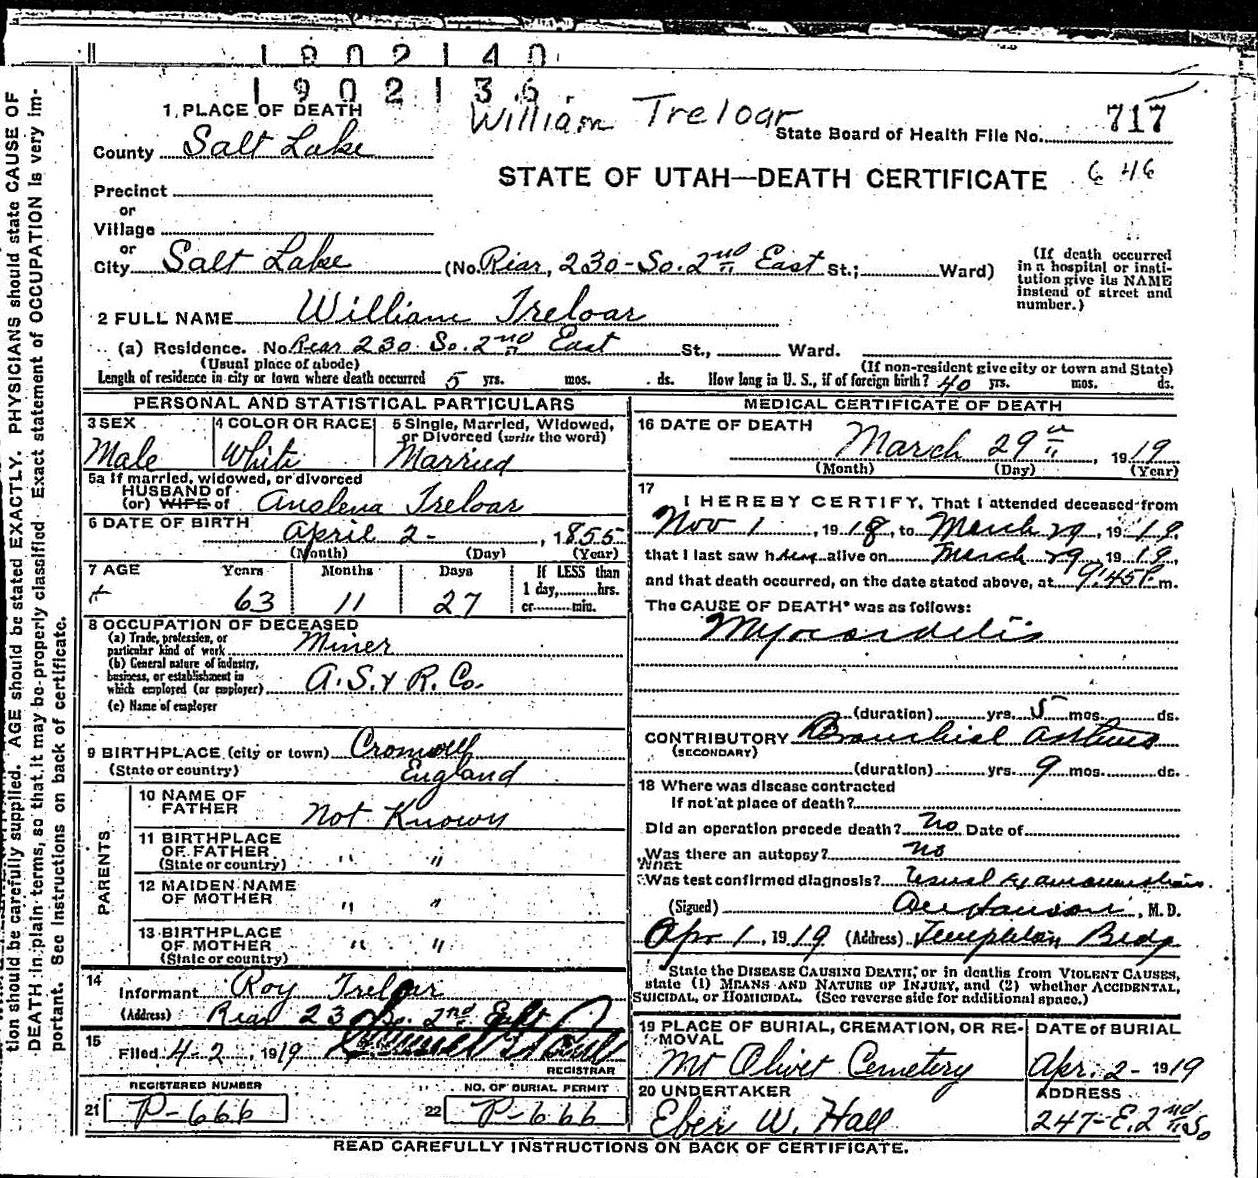 1902140
1902136
William Treloar
1 PLACE OF DEATH
State Board of Health File No. 717
County Salt Lake
STATE OF UTAH—DEATH CERTIFICATE 646
Precinct
or
Village
or
City Salt Lake (No. Riar, 230-So. 2nd East St.; Ward)
(If death occurred in a hospital or insti-
tution give its NAME
instead of street and
number.)
2 FULL NAME William Treloar
(a) Residence. No. Rear 230 So. 2nd East St., Ward.
(Usual place of abode) (If non-resident give city or town and State)
Length of residence in city or town where death occurred 5 yrs. mos. ds. How long in U. S., if of foreign birth? 40 yrs. mos. ds.
PERSONAL AND STATISTICAL PARTICULARS
3 SEX Male
4 COLOR OR RACE White
5 Single, Married, Widowed,
or Divorced (write the word)
Married
5a If married, widowed, or divorced
HUSBAND of
(or) WIFE of Treloar
6 DATE OF BIRTH April 2- , 1855
(Month) (Day) (Year)
7 AGE Years Months Days If LESS than
1 day, hrs.
or min.
63 11 27
8 OCCUPATION OF DECEASED
(a) Trade, profession, or
particular kind of work Miner
(b) General nature of industry,
business, or establishment in
which employed (or employer) A. S. & R. Co.
(c) Name of employer
9 BIRTHPLACE (city or town) Cromwell
(State or country) England
PARENTS
10 NAME OF
FATHER Not Known
11 BIRTHPLACE
OF FATHER
(State or country) " "
12 MAIDEN NAME
OF MOTHER " "
13 BIRTHPLACE
OF MOTHER
(State or country) " "
14
Informant Roy Treloar
(Address) Rear 230 So. 2nd East
15
Filed 4-2, 1919
REGISTRAR
REGISTERED NUMBER NO. OF BURIAL PERMIT
21 P-666 22 P-666
MEDICAL CERTIFICATE OF DEATH
16 DATE OF DEATH
March 29th 1919
(Month) (Day) (Year)
17
I HEREBY CERTIFY, That I attended deceased from
Nov 1, 1918, to March 29, 1919,
that I last saw him alive on March 29, 1919,
and that death occurred, on the date stated above, at 9:45P. m.
The CAUSE OF DEATH* was as follows:
Myocardelis
(duration) yrs. 5 mos. ds.
CONTRIBUTORY Bronchial Asthma
(SECONDARY)
(duration) yrs. 9 mos. ds.
18 Where was disease contracted
If not at place of death?
Did an operation precede death? No Date of
Was there an autopsy? No
What
Was test confirmed diagnosis? Usual Examination
(Signed) Hanson, M. D.
Apr 1, 1919 (Address) Templeton Bldg
*State the DISEASE CAUSING DEATH, or in deaths from VIOLENT CAUSES,
state (1) MEANS AND NATURE OF INJURY, and (2) whether ACCIDENTAL,
SUICIDAL, or HOMICIDAL. (See reverse side for additional space.)
19 PLACE OF BURIAL, CREMATION, OR RE-
MOVAL
Mt Olivet Cemetery
DATE of BURIAL
Apr. 2- 1919
20 UNDERTAKER
Eber W. Hall
ADDRESS
247-E. 2nd So
READ CAREFULLY INSTRUCTIONS ON BACK OF CERTIFICATE.
tion should be carefully supplied. AGE should be stated EXACTLY. PHYSICIANS should state CAUSE OF
DEATH in plain terms, so that it may be properly classified. Exact statement of OCCUPATION is very im-
portant. See instructions on back of certificate.